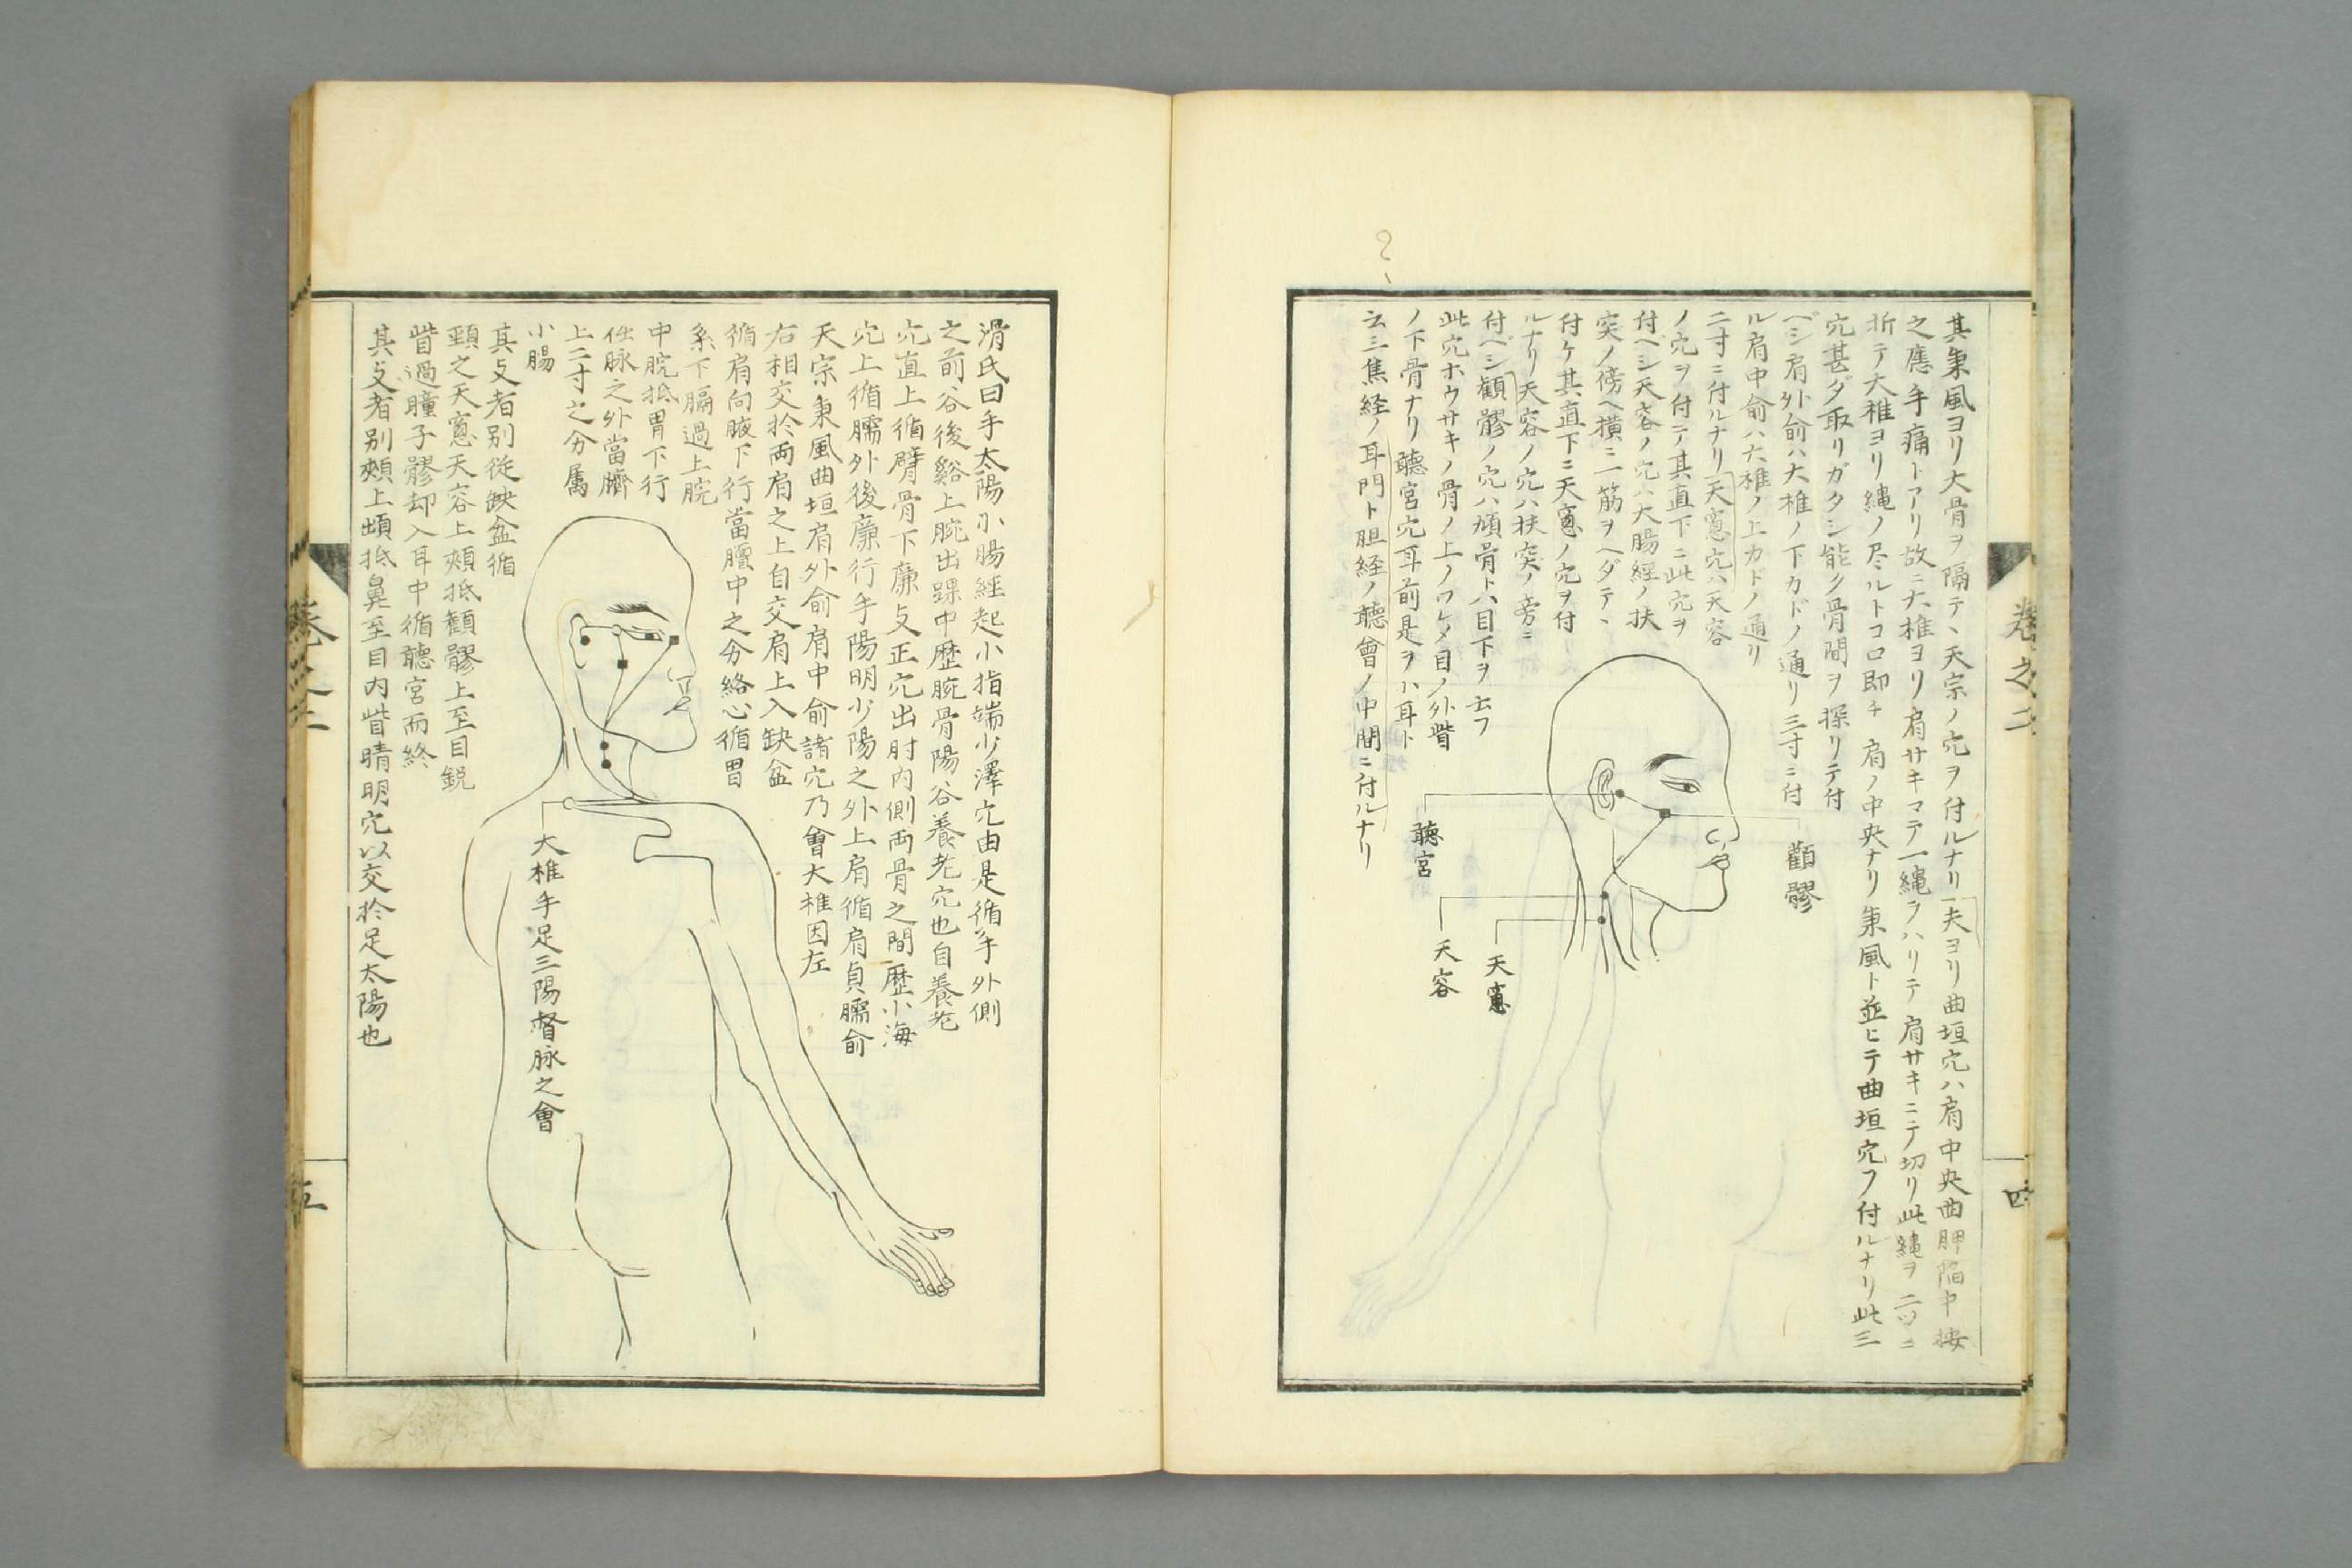 卷之二
四
其秉風ヨリ大骨ヲ隔テ、天宗ノ穴ヲ付ルナリ一夫ヨリ曲垣穴ハ肩中央曲胛陷中按
之應手痛トアリ故ニ大椎ヨリ肩サキマテ一縄ヲハリテ肩サキニテ切リ此縄ヲ二ツニ
折テ大椎ヨリ縄ノ尽ルトコロ即チ肩ノ中央ナリ秉風ト並ヒテ曲垣穴ヲ付ルナリ此三
穴甚ダ取リガタシ能ク骨間ヲ探リテ付
ベシ肩外俞ハ大椎ノ下カドノ通リ三寸ニ付
ル肩中俞ハ大椎ノ上カドノ通リ
二寸ニ付ルナリ天窓穴ハ天容
ノ穴ヲ付テ其直下ニ此穴ヲ
付ベシ天容ノ穴ハ大腸經ノ扶
突ノ傍ヘ横ニ一筋ヲヘダテ、
付ケ其直下ニ天窓ノ穴ヲ付
ルナリ天容ノ穴ハ扶突ノ旁ニ
付ベシ顴髎ノ穴ハ頄骨ト八目下ヲ云フ
此穴ホウサキノ骨ノ上ノワケメ目ノ外眥
ノ下骨ナリ聽宮穴耳前是ヲ小耳ト
云三焦経ノ耳門ト胆経ノ聽會ノ中間ニ付ルナリ
顴髎
聽宮
天窓
天容
滑氏曰手太陽小腸經起小指端少澤穴由是循手外側
之前谷後谿上腕出踝中歷腕骨陽谷養老穴也自養老
穴直上循臂骨下廉支正穴出肘内側両骨之間歷小海
穴上循臑外後廉行手陽明少陽之外上肩循肩貞臑俞
天宗秉風曲垣肩外俞肩中俞諸穴乃會大椎因左
右相交於両肩之上自交肩上入缺盆
循肩向腋下行當膻中之分絡心循胃
系下膈過上脘
中脘抵胃下行
任脉之外當臍
上二寸之分属
小腸
其支者別従缺盆循
頸之天窓天容上頰抵顴髎上至目鋭
眥過瞳子髎却入耳中循聽宮而終
其支者别頰上䪼抵鼻至目内眥睛明穴以交於足太陽也
大椎手足三陽督脉之會
卷之二
五